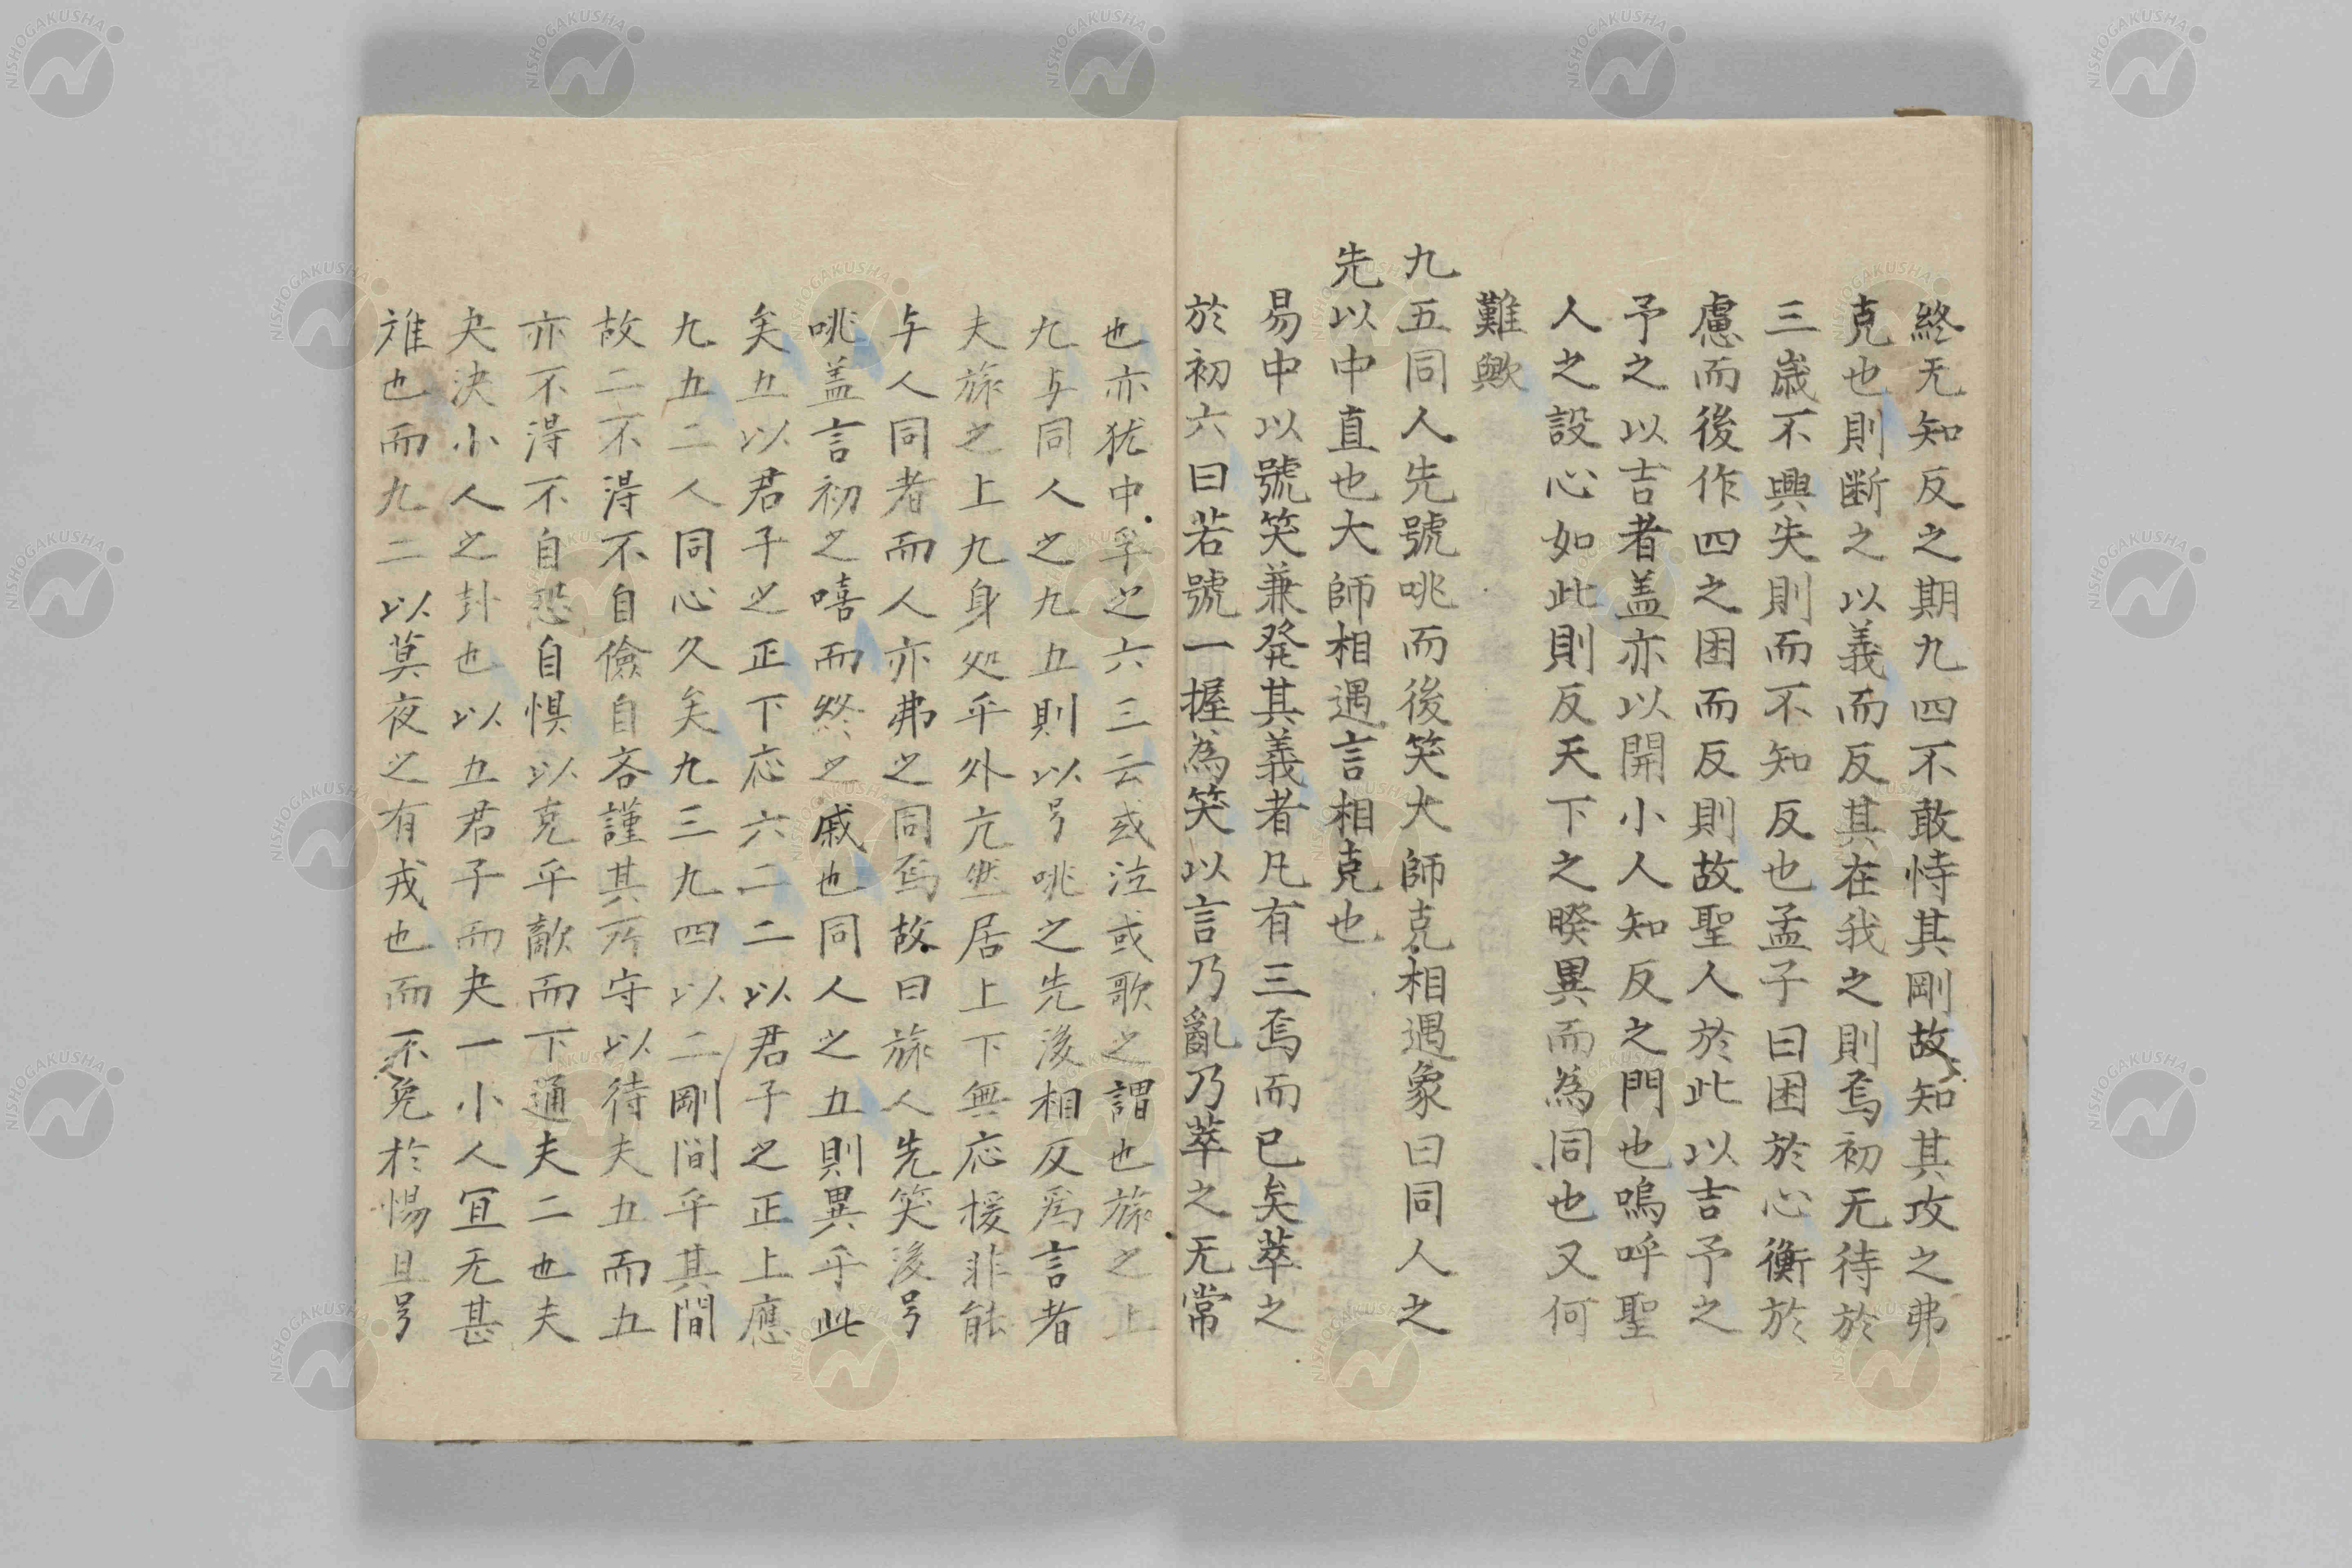 終无知反之期九四不敢恃其剛故知其攻之弗
克也則断之以義而反其在我之則焉初无待於
三歳不興失則而不知反也孟子曰困於心衡於
慮而後作四之困而反則故聖人於此以吉予之
予之以吉者盖亦以開小人知反之門也嗚呼聖
人之設心如此則反天下之睽異而為同也又何
難歟
九五同人先號咷而後笑大師克相遇象曰同人之
先以中直也大師相遇言相克也
易中以號笑兼発其義者凡有三焉而已矣萃之
於初六曰若號一握為笑以言乃亂乃萃之无常
也亦犹中孚之六三云或泣或歌之謂也旅之上
九与同人之九五則以号咷之先後相反爲言者
夫旅之上九身処乎外亢然居上下無応援非能
与人同者而人亦弗之同焉故曰旅人先笑後号
咷盖言初之嘻而終之戚也同人之五則異乎此
矣五以君子之正下応六二二以君子之正上應
九五二人同心久矣九三九四以二剛間乎其間
故二不得不自儉自吝謹其所守以待夫五而五
亦不得不自恐自惧以克乎敵而下通夫二也夫
夬決小人之卦也以五君子而夬一小人宜无甚
难也而九二以莫夜之有戎也而不免於惕且号
NISHOGAKUSHA